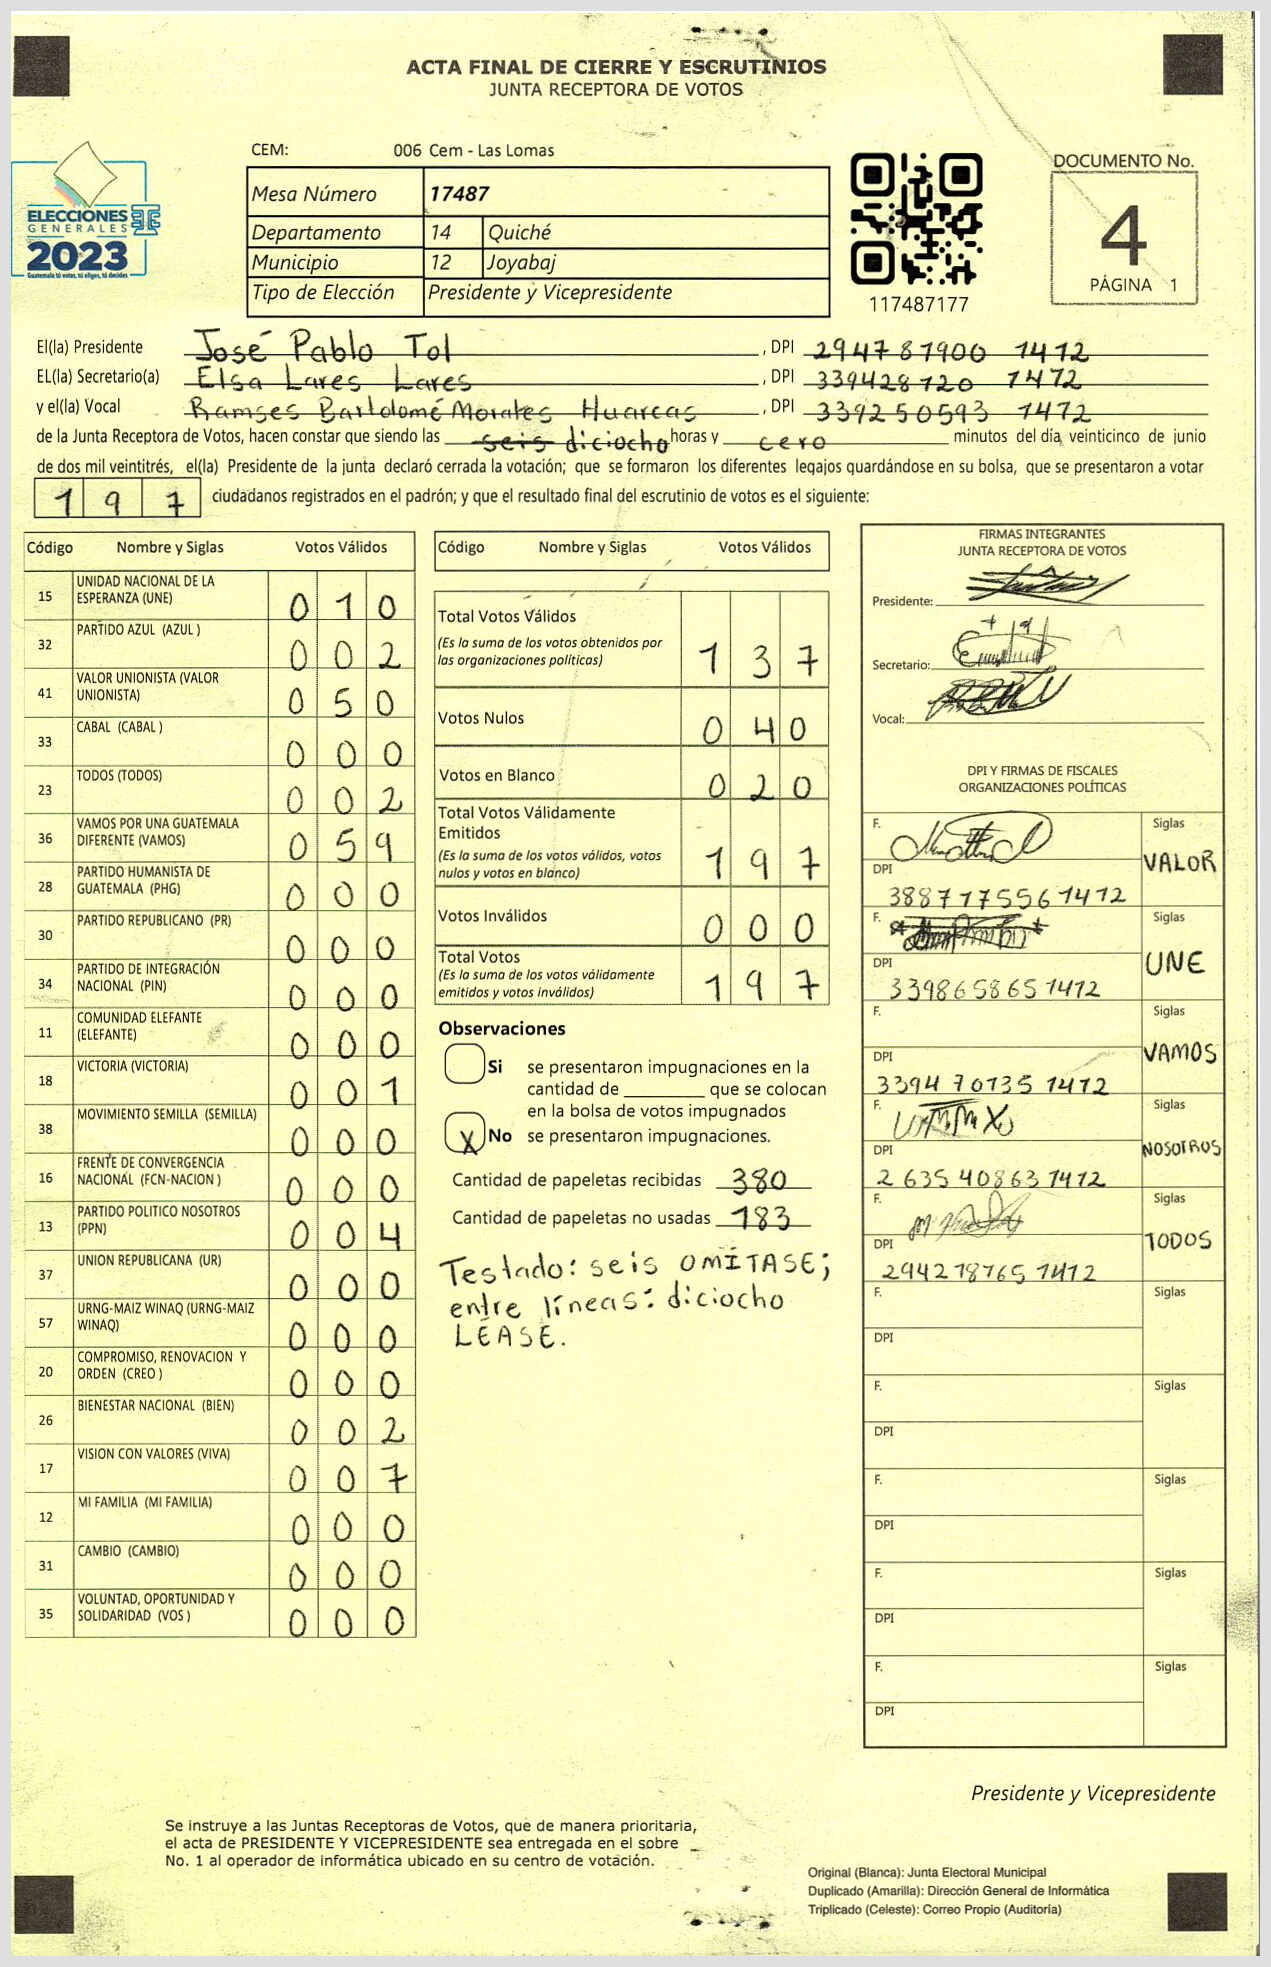 ACTA FINAL DE CIERRE Y ESCRUTINIOS
JUNTA RECEPTORA DE VOTOS
CEM: 006 Cem - Las Lomas
ELECCIONES
GENERALES
2023
Guatemala tú votas, tú eliges, tú decides
Mesa Número 17487
Departamento 14 Quiché
Municipio 12 Joyabaj
Tipo de Elección Presidente y Vicepresidente
117487177
DOCUMENTO No.
4
PÁGINA 1
El(la) Presidente José Pablo Tol , DPI 294787900 1412
EL(la) Secretario(a) Elsa Lares Lares , DPI 339428120 1472
y el(la) Vocal Ramses Bartolomé Morales Huarcas , DPI 339250593 1472
de la Junta Receptora de Votos, hacen constar que siendo las seis diciocho horas y cero minutos del día, veinticinco de junio
de dos mil veintitrés, el(la) Presidente de la junta declaró cerrada la votación; que se formaron los diferentes legajos quardándose en su bolsa, que se presentaron a votar
197 ciudadanos registrados en el padrón; y que el resultado final del escrutinio de votos es el siguiente:
Código Nombre y Siglas Votos Válidos
15 UNIDAD NACIONAL DE LA ESPERANZA (UNE) 010
32 PARTIDO AZUL (AZUL ) 002
41 VALOR UNIONISTA (VALOR UNIONISTA) 050
33 CABAL (CABAL ) 000
23 TODOS (TODOS) 002
36 VAMOS POR UNA GUATEMALA DIFERENTE (VAMOS) 059
28 PARTIDO HUMANISTA DE GUATEMALA (PHG) 000
30 PARTIDO REPUBLICANO (PR) 000
34 PARTIDO DE INTEGRACIÓN NACIONAL (PIN) 000
11 COMUNIDAD ELEFANTE (ELEFANTE) 000
18 VICTORIA (VICTORIA) 001
38 MOVIMIENTO SEMILLA (SEMILLA) 000
16 FRENTE DE CONVERGENCIA NACIONAL (FCN-NACION ) 000
13 PARTIDO POLITICO NOSOTROS (PPN) 004
37 UNION REPUBLICANA (UR) 000
57 URNG-MAIZ WINAQ (URNG-MAIZ WINAQ) 000
20 COMPROMISO, RENOVACION Y ORDEN (CREO ) 000
26 BIENESTAR NACIONAL (BIEN) 002
17 VISION CON VALORES (VIVA) 007
12 MI FAMILIA (MI FAMILIA) 000
31 CAMBIO (CAMBIO) 000
35 VOLUNTAD, OPORTUNIDAD Y SOLIDARIDAD (VOS ) 000
Código Nombre y Siglas Votos Válidos
Total Votos Válidos
(Es la suma de los votos obtenidos por
las organizaciones políticas) 137
Votos Nulos 040
Votos en Blanco 020
Total Votos Válidamente
Emitidos
(Es la suma de los votos válidos, votos
nulos y votos en blanco) 197
Votos Inválidos 000
Total Votos
(Es la suma de los votos válidamente
emitidos y votos inválidos) 197
Observaciones
Si se presentaron impugnaciones en la
cantidad de ________ que se colocan
en la bolsa de votos impugnados
X No se presentaron impugnaciones.
Cantidad de papeletas recibidas 380
Cantidad de papeletas no usadas 183
Testado: seis OMÍTASE;
entre líneas: diciocho
LÉASE.
FIRMAS INTEGRANTES
JUNTA RECEPTORA DE VOTOS
Presidente:
Secretario:
Vocal:
DPI Y FIRMAS DE FISCALES
ORGANIZACIONES POLÍTICAS
F. Siglas
VALOR
DPI
3887775561412
F. Siglas
UNE
DPI
3398658651412
F. Siglas
VAMOS
DPI
3394701351412
F. Siglas
NOSOTROS
DPI
2635408631412
F. Siglas
TODOS
DPI
2942787651412
F. Siglas
DPI
F. Siglas
DPI
F. Siglas
DPI
F. Siglas
DPI
F. Siglas
DPI
Presidente y Vicepresidente
Se instruye a las Juntas Receptoras de Votos, que de manera prioritaria,
el acta de PRESIDENTE Y VICEPRESIDENTE sea entregada en el sobre
No. 1 al operador de informática ubicado en su centro de votación.
Original (Blanca): Junta Electoral Municipal
Duplicado (Amarilla): Dirección General de Informática
Triplicado (Celeste): Correo Propio (Auditoría)